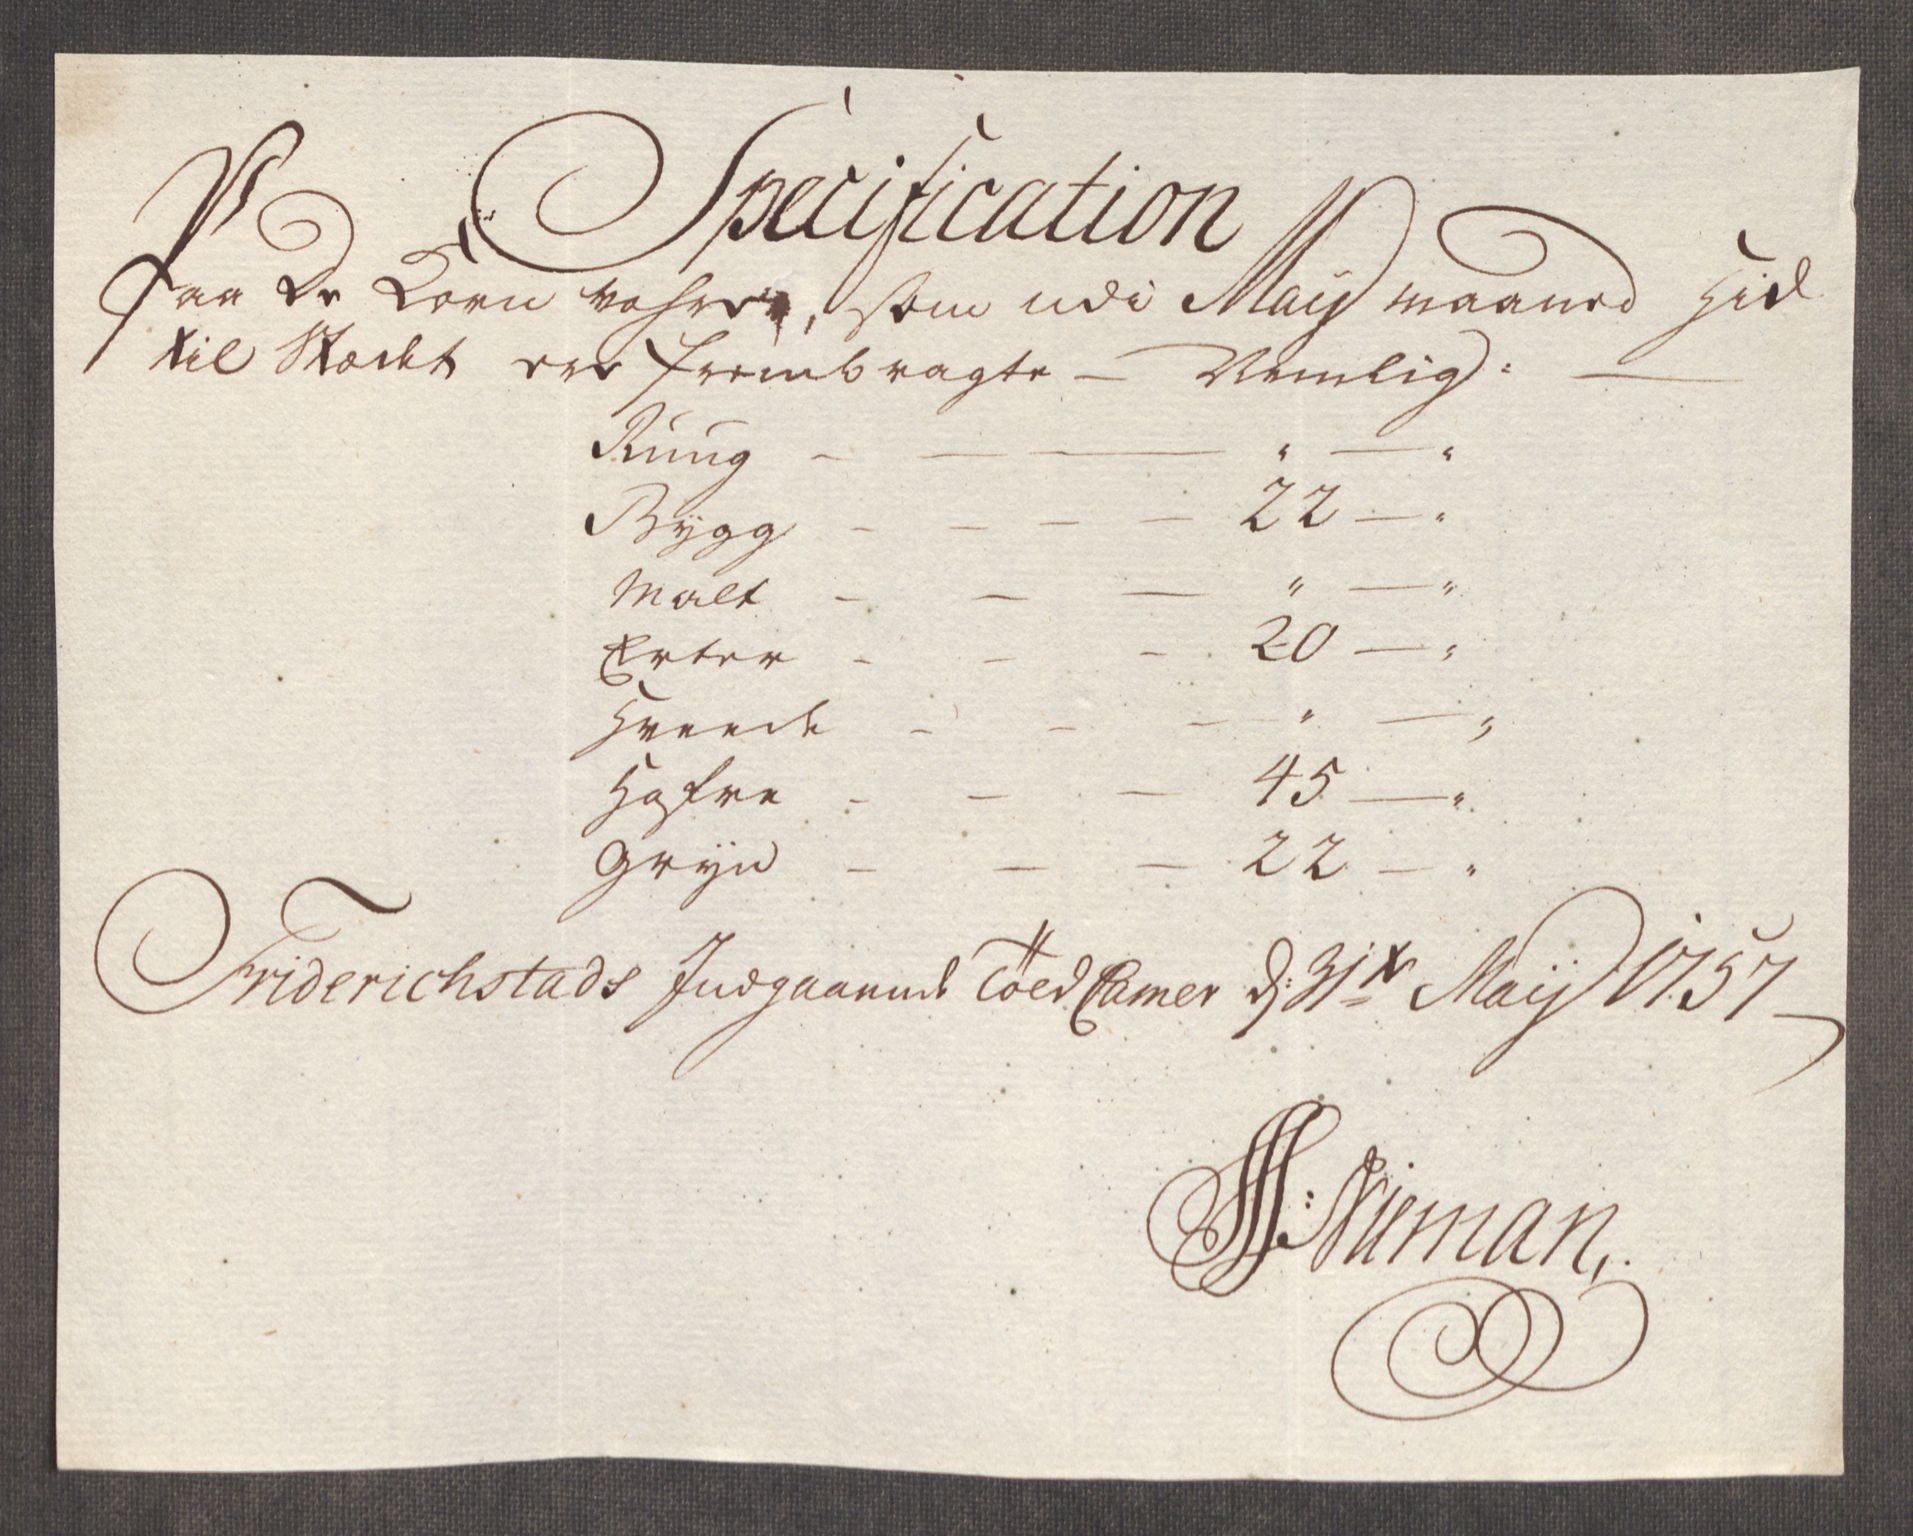 Specification
Paa de Korn vahre, som udi Maij maaned hid
til Stædet ere frembragte — Nemlig: —
Rüüg — — — — " — "
Bÿgg — — — — 22 — "
Malt — — — " — "
Erter — — — 20 — "
Hveede — — — " — "
Hafre — — — 45 — "
Grÿn — — — 22 — "
Friderichstads Indgaaende Toldcamer d: 31te Maij 1757
Nieman,